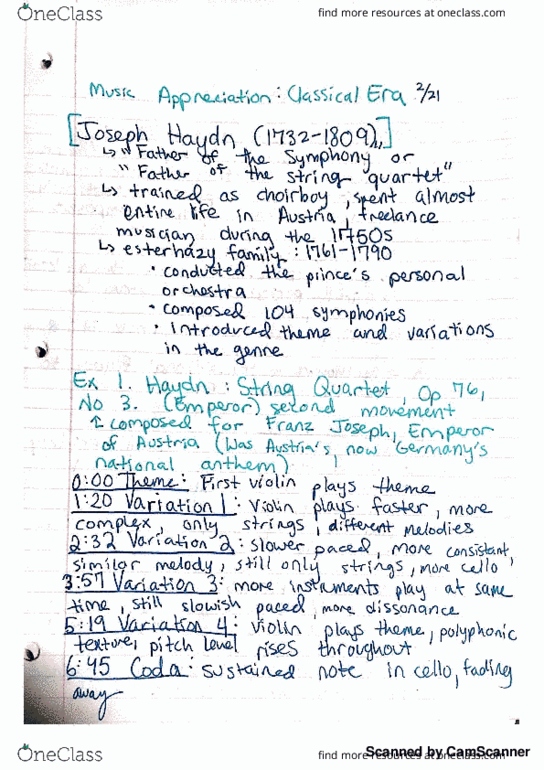 OneClass
find more resources at oneclass.com
Music Appreciation: Classical Era 2/21
[Joseph Haydn (1732-1809),]
↳ "Father of the Symphony or
"Father of the string quartet"
↳ trained as choirboy, spent almost
entire life in Austria, freelance
musician during the 1750s
↳ esterhazy family: 1761-1790
• conducted the prince's personal
orchestra
• composed 104 symphonies
• introduced theme and variations
in the genre
Ex 1. Haydn: String Quartet, Op 76,
No 3. (Emperor) second movement
↑ composed for Franz Joseph, Emperor
of Austria (Was Austria's, now Germany's
national anthem)
0:00 Theme: First violin plays theme
1:20 Variation 1: Violin plays faster, more
complex, only strings, different melodies
2:32 Variation 2: slower paced, more consistant,
similar melody, still only strings, more cello
3:57 Variation 3: more instruments play at same
time, still slowish paced, more dissonance
5:19 Variation 4: violin plays theme, polyphonic
texture, pitch level rises throughout
6:45 Coda: sustained note in cello, fading
away
Scanned by CamScanner
OneClass
find more resources at oneclass.com